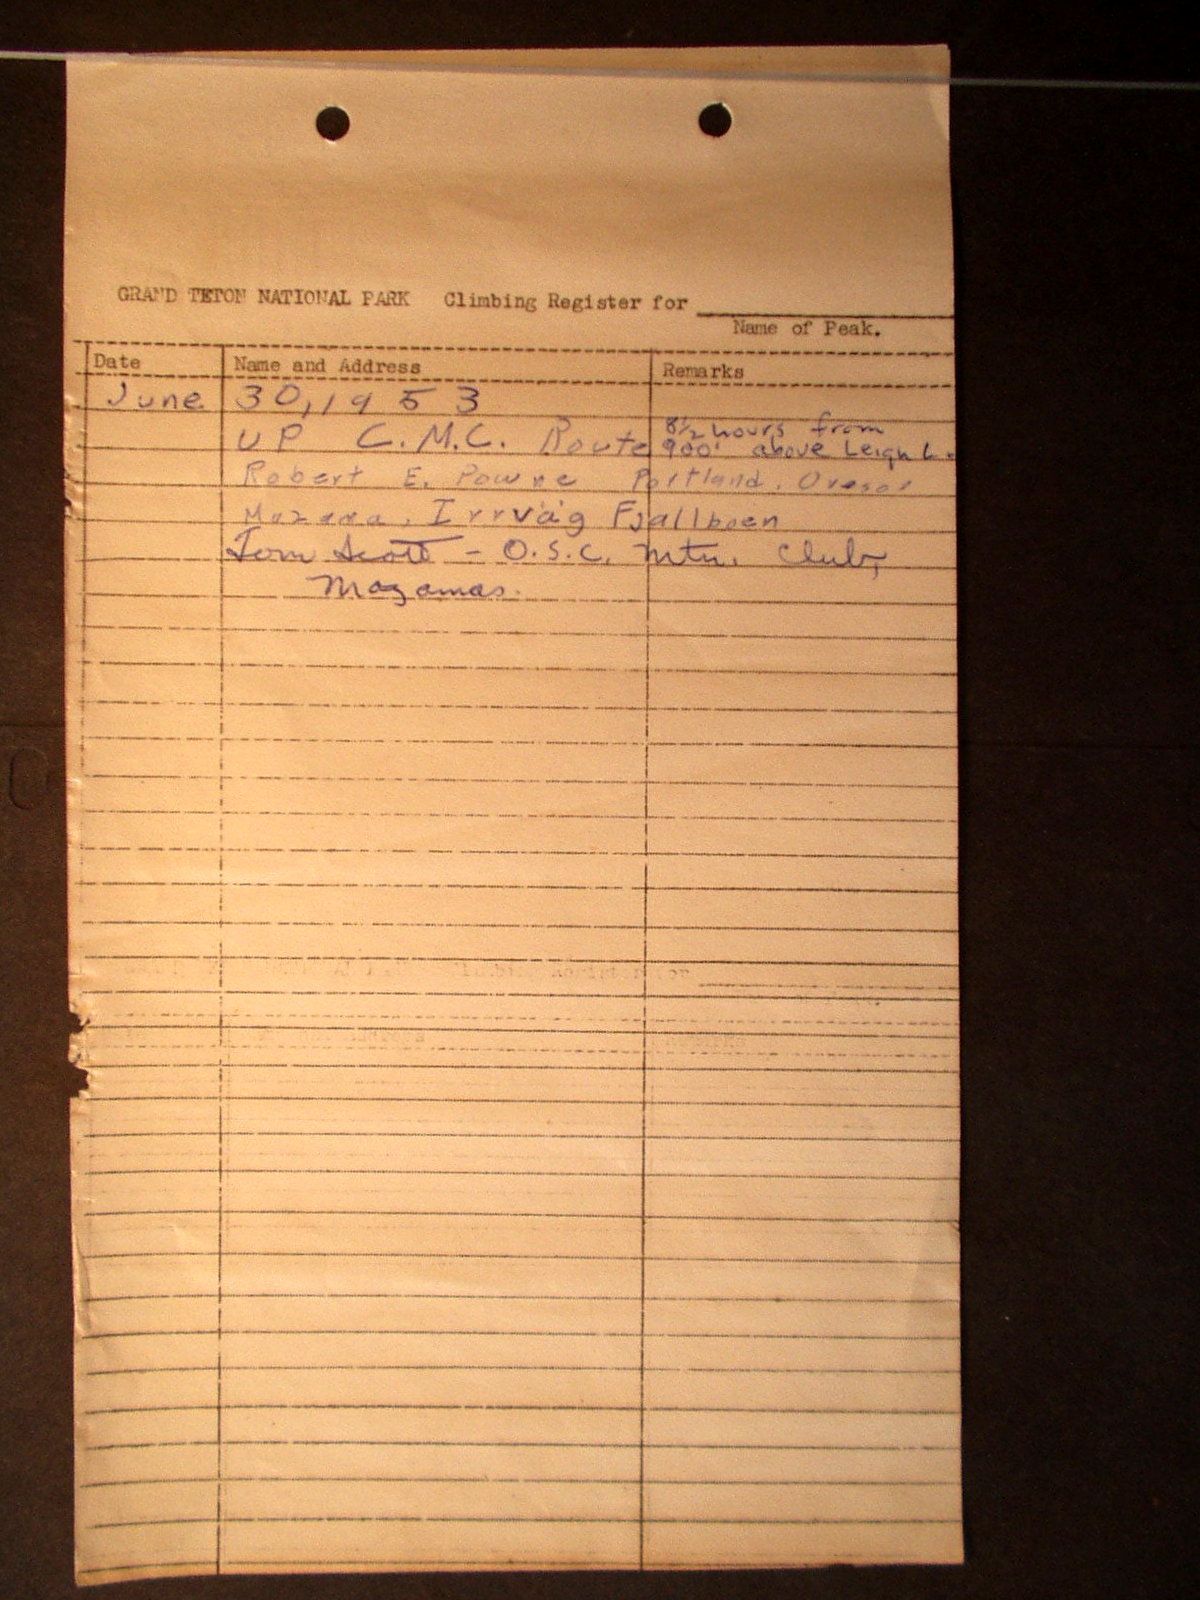 GRAND TETON NATIONAL PARK Climbing Register for
Name of Peak.
Date Name and Address Remarks
June 30, 1953
UP C.M.C. Route 8½ hours from
900' above Leigh L.
Robert E. Portland, Oregon
Mazama, Fjallboen
Tom Scott - O.S.C. Mtn. Club,
Mazamas.